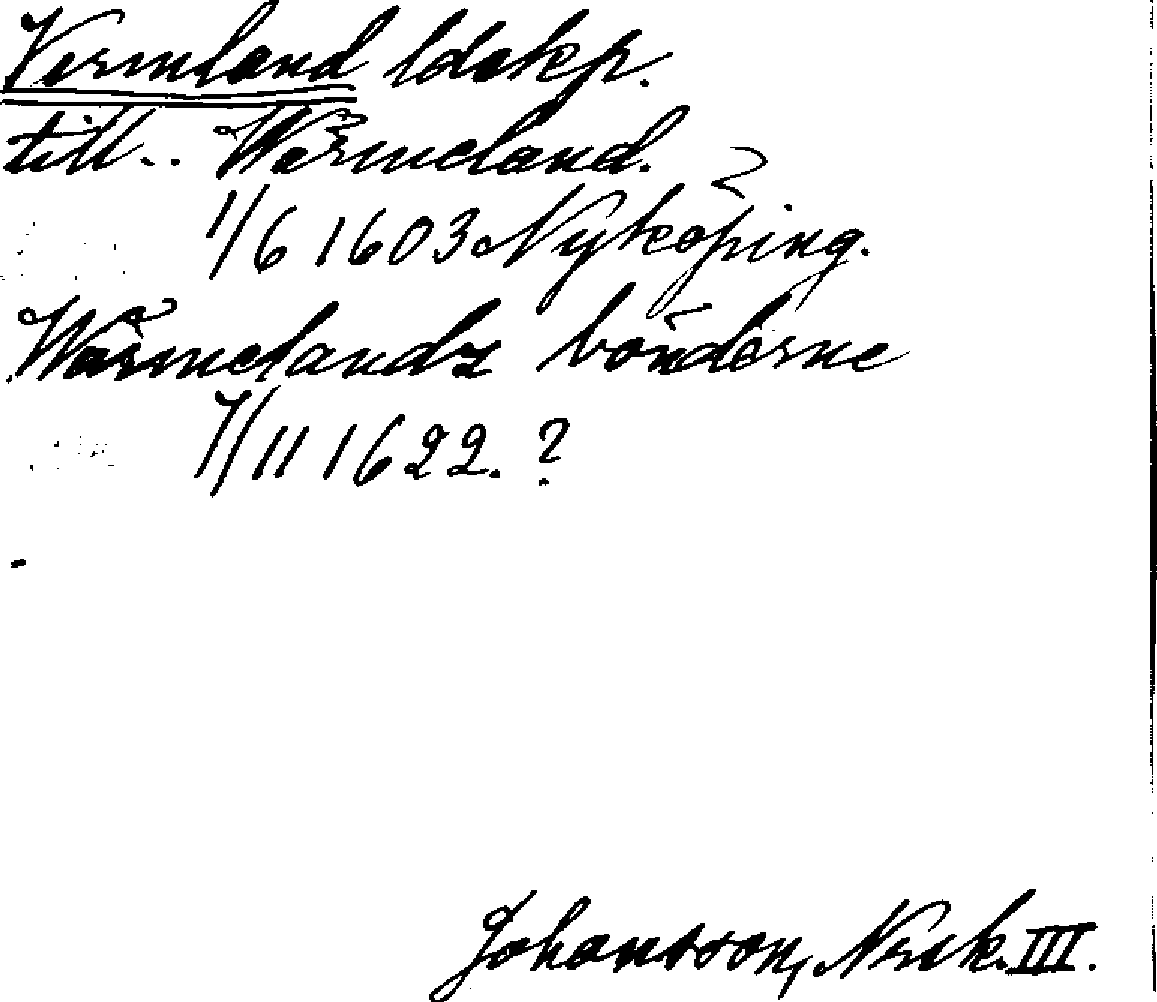 Vermland ldskp.
till.. Wärmeland.
1/6 1603 Nyköping.
Wärmelandz bönderne
7/11 1622. ?
Johansson, Norsk. III.